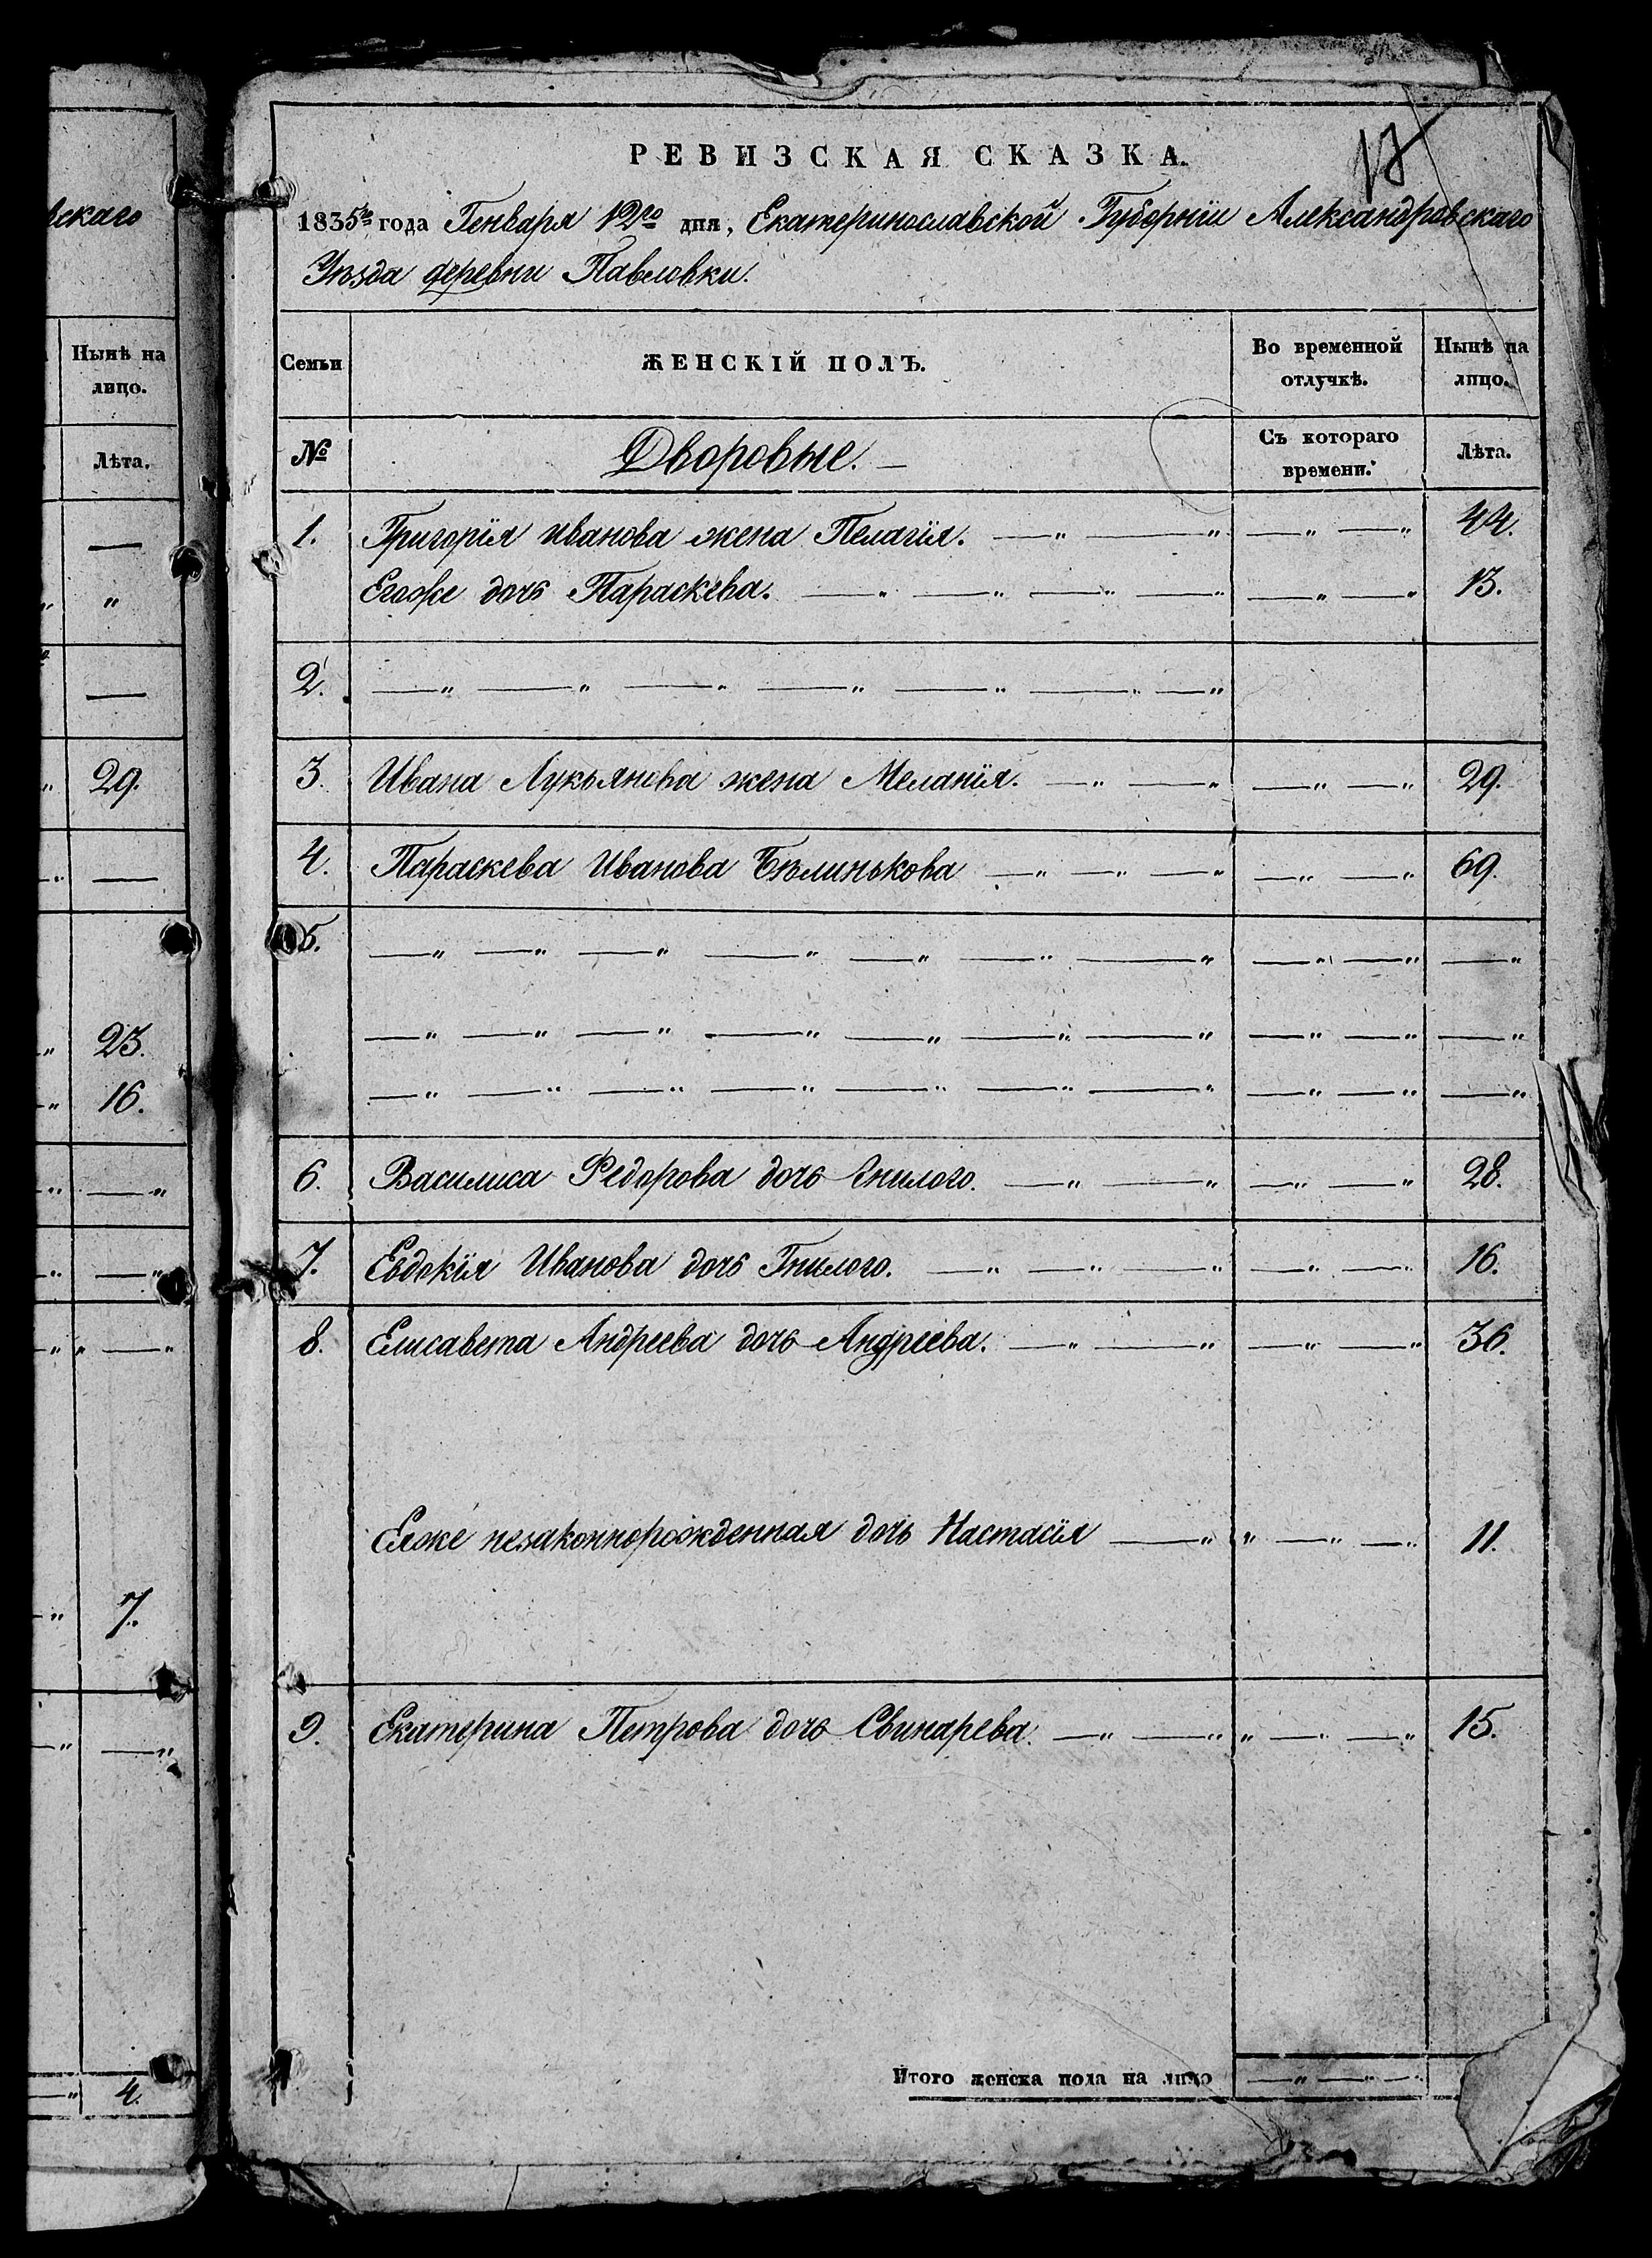 скаго
Нынѣ на
лицо.
Лѣта.
—
"
—
29.
—
23.
16.
— "
— "
" — "
7.
— "
4.
17
РЕВИЗСКАЯ СКАЗКА.
1835го года Генваря 12го дня, Екатеринославской Губернїи Александровскаго
Уѣзда деревни Павловки.
Семьи ЖЕНСКІЙ ПОЛЪ. Во временной отлучкѣ. Нынѣ на лицо.
№ Дворовые. — Съ котораго времени. Лѣта.
1. Григорїя Иванова жена Пелагїя. — " — " — " — " 44.
Егоже дочь Параскева. — " — " — " — " — " — " 13.
2. — " — " — " — " — " — " — "
3. Ивана Лукьянова жена Меланїя. — " — " — " — " 29.
4. Параскева Иванова Бѣлинькова — " — " — " — " — " 69.
5. — " — " — " — " — " — " — " — " — " — "
— " — " — " — " — " — " — " — " — " — "
— " — " — " — " — " — " — " — " — " — "
6. Василиса Федорова дочь Гнилого. — " — " — " — " 28.
7. Евдокїя Иванова дочь Гнилого. — " — " — " — " — " 16.
8. Елисавета Андреева дочь Андреева. — " — " — " — " 36.
Еяже незаконнорожденная дочь Настасїя — " " — " — " 11.
9. Екатерина Петрова дочь Свинарева. — " — " " — " — " 15.
Итого женска пола на лицо — " — " — "